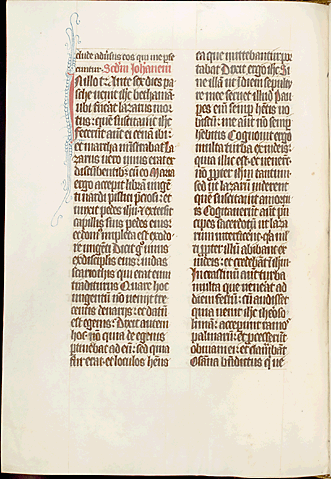 clude adũsus eos qui me pse
cuntur. Scdm Johanem
In illo t. Ante sex dies pa
sche uenit ihc bethaniã
ubi fuerat lazarus mor
tuus: quẽ suscitauit ihc
fecerũt aut ei cenã ibi:
et martha mĩstrabat la
zarus uero unus erat ex
discũbentibus cũ eo Maria
ergo accepit librã ungẽ
ti nardi pistici pciosi: et
unxit pedes ihu et extersit
capillis suis pedes eius:
et dom impleta est exodo
re ungẽti Dicit gͦ unus
ex discipulis eius: iudas
scariothis qui erat eum
traditurus Quare hoc
ungentũ nõ uenijt tre
centis denarijs: et datũ
est egenis: Dixit autem
hoc nõ quia de egenis
ptinebat ad eũ: sed quia
fur erat et loculos hẽns
ea que mittebantur por
tabat Dixit ergo ihc Si
ne illã ut ĩ diem sepultu
re mee seruet illud Pau
pes eñ semp hẽtis uo
biscũ: me aut nõ semp
hẽbitis Cognouit ergo
multa turba ex iudeis:
quia illic est et uenerũt:
nõ ppter ihm tantum:
sed ut lazarũ uiderent
quẽ suscitauit amortu
is Cogitauerũt aut prin
cipes sacerdotũ ut laza
rum interficerẽt: qa mlti
ppter illũ abibant ex
iudeis: et credebãt ĩ ihm
In crastinũ aut turba
multa que uenerat ad
diem festũ: cũ audisset
quia uenit ihc iheroso
limã: acceperunt ramos
palmarũ: et pcesserunt
obuiam ei: et clamabãt
Osãna bñdictus q̃ ue